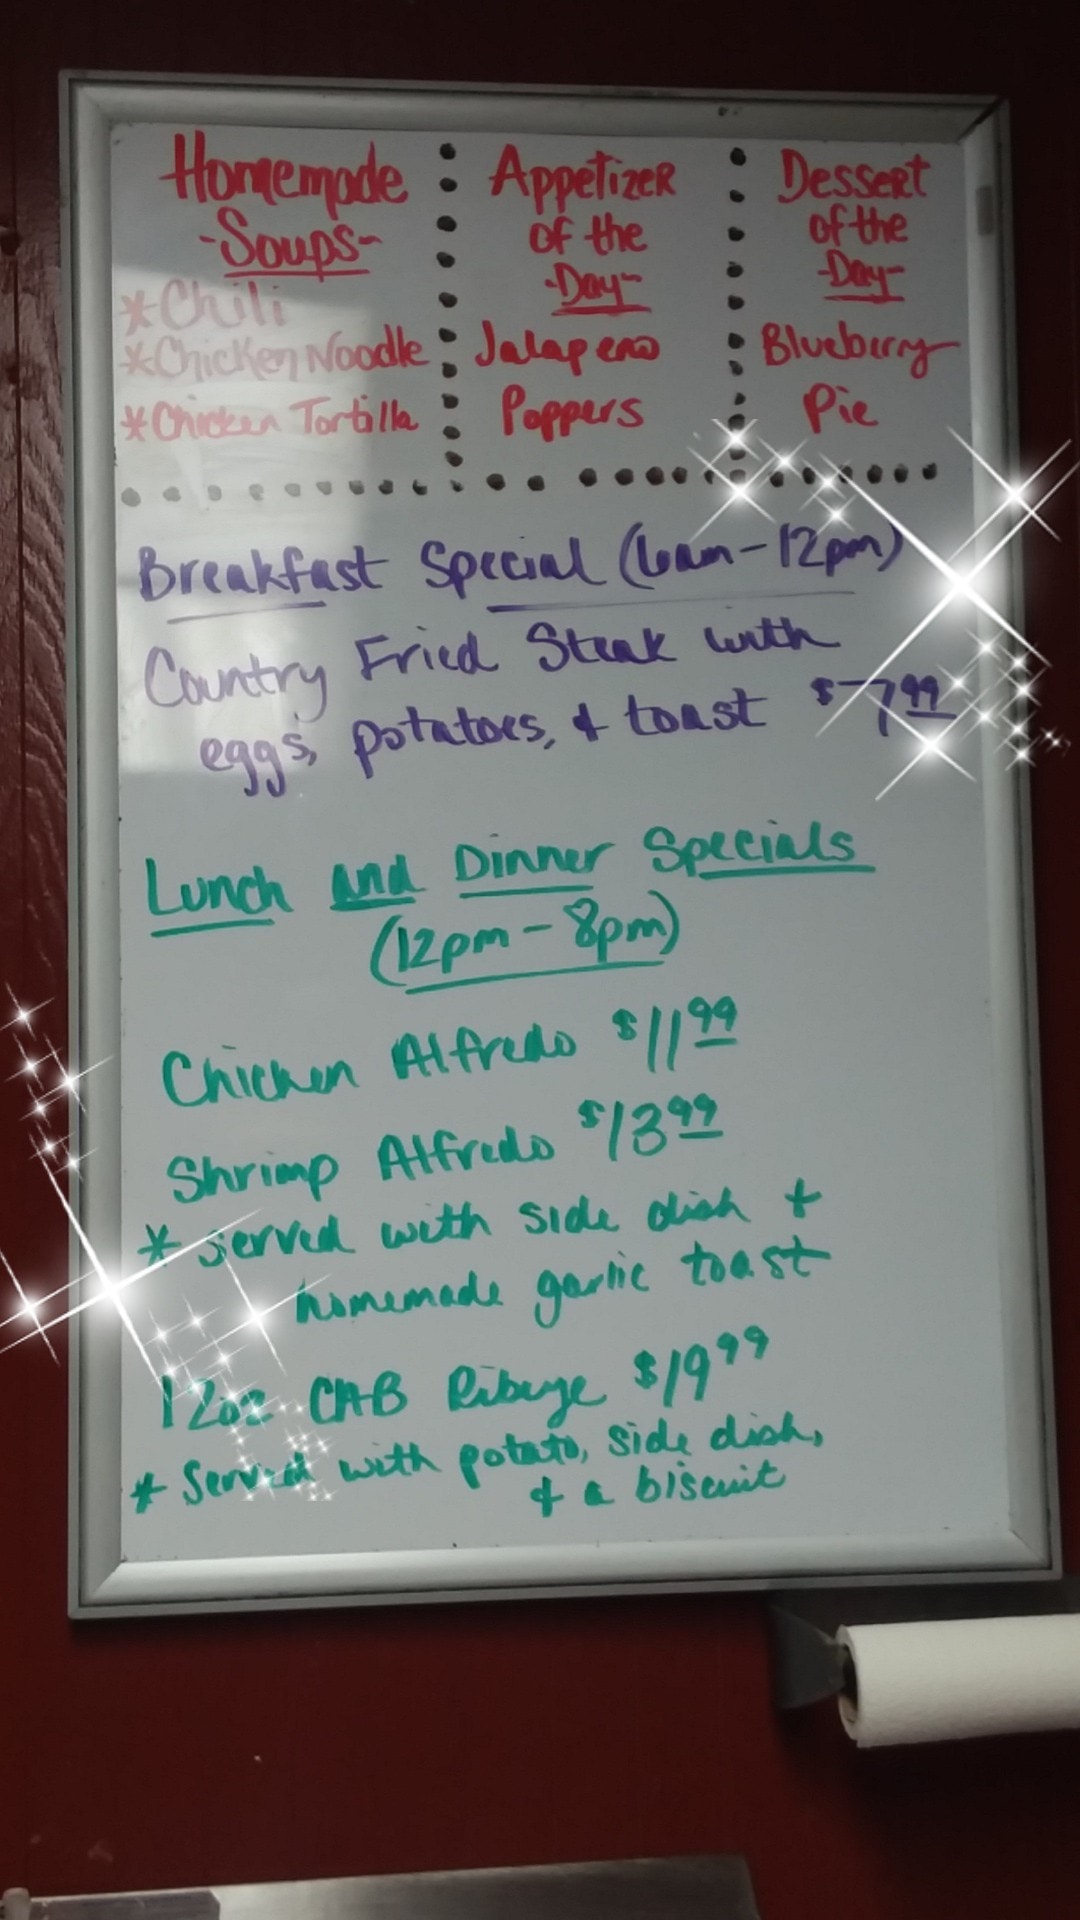 Homemade
-Soups-
*Chili
*Chicken Noodle
*Chicken Tortilla
Appetizer
of the
-Day-
Jalapeno
Poppers
Dessert
of the
-Day-
Blueberry
Pie
Breakfast Special (6am-12pm)
Country Fried Steak with
eggs, potatoes, & toast $7.99
Lunch and Dinner Specials
(12pm-8pm)
Chicken Alfredo $11.99
Shrimp Alfredo $13.99
* served with side dish &
homemade garlic toast
12oz CAB Ribeye $19.99
* Served with potato, side dish,
& a biscuit